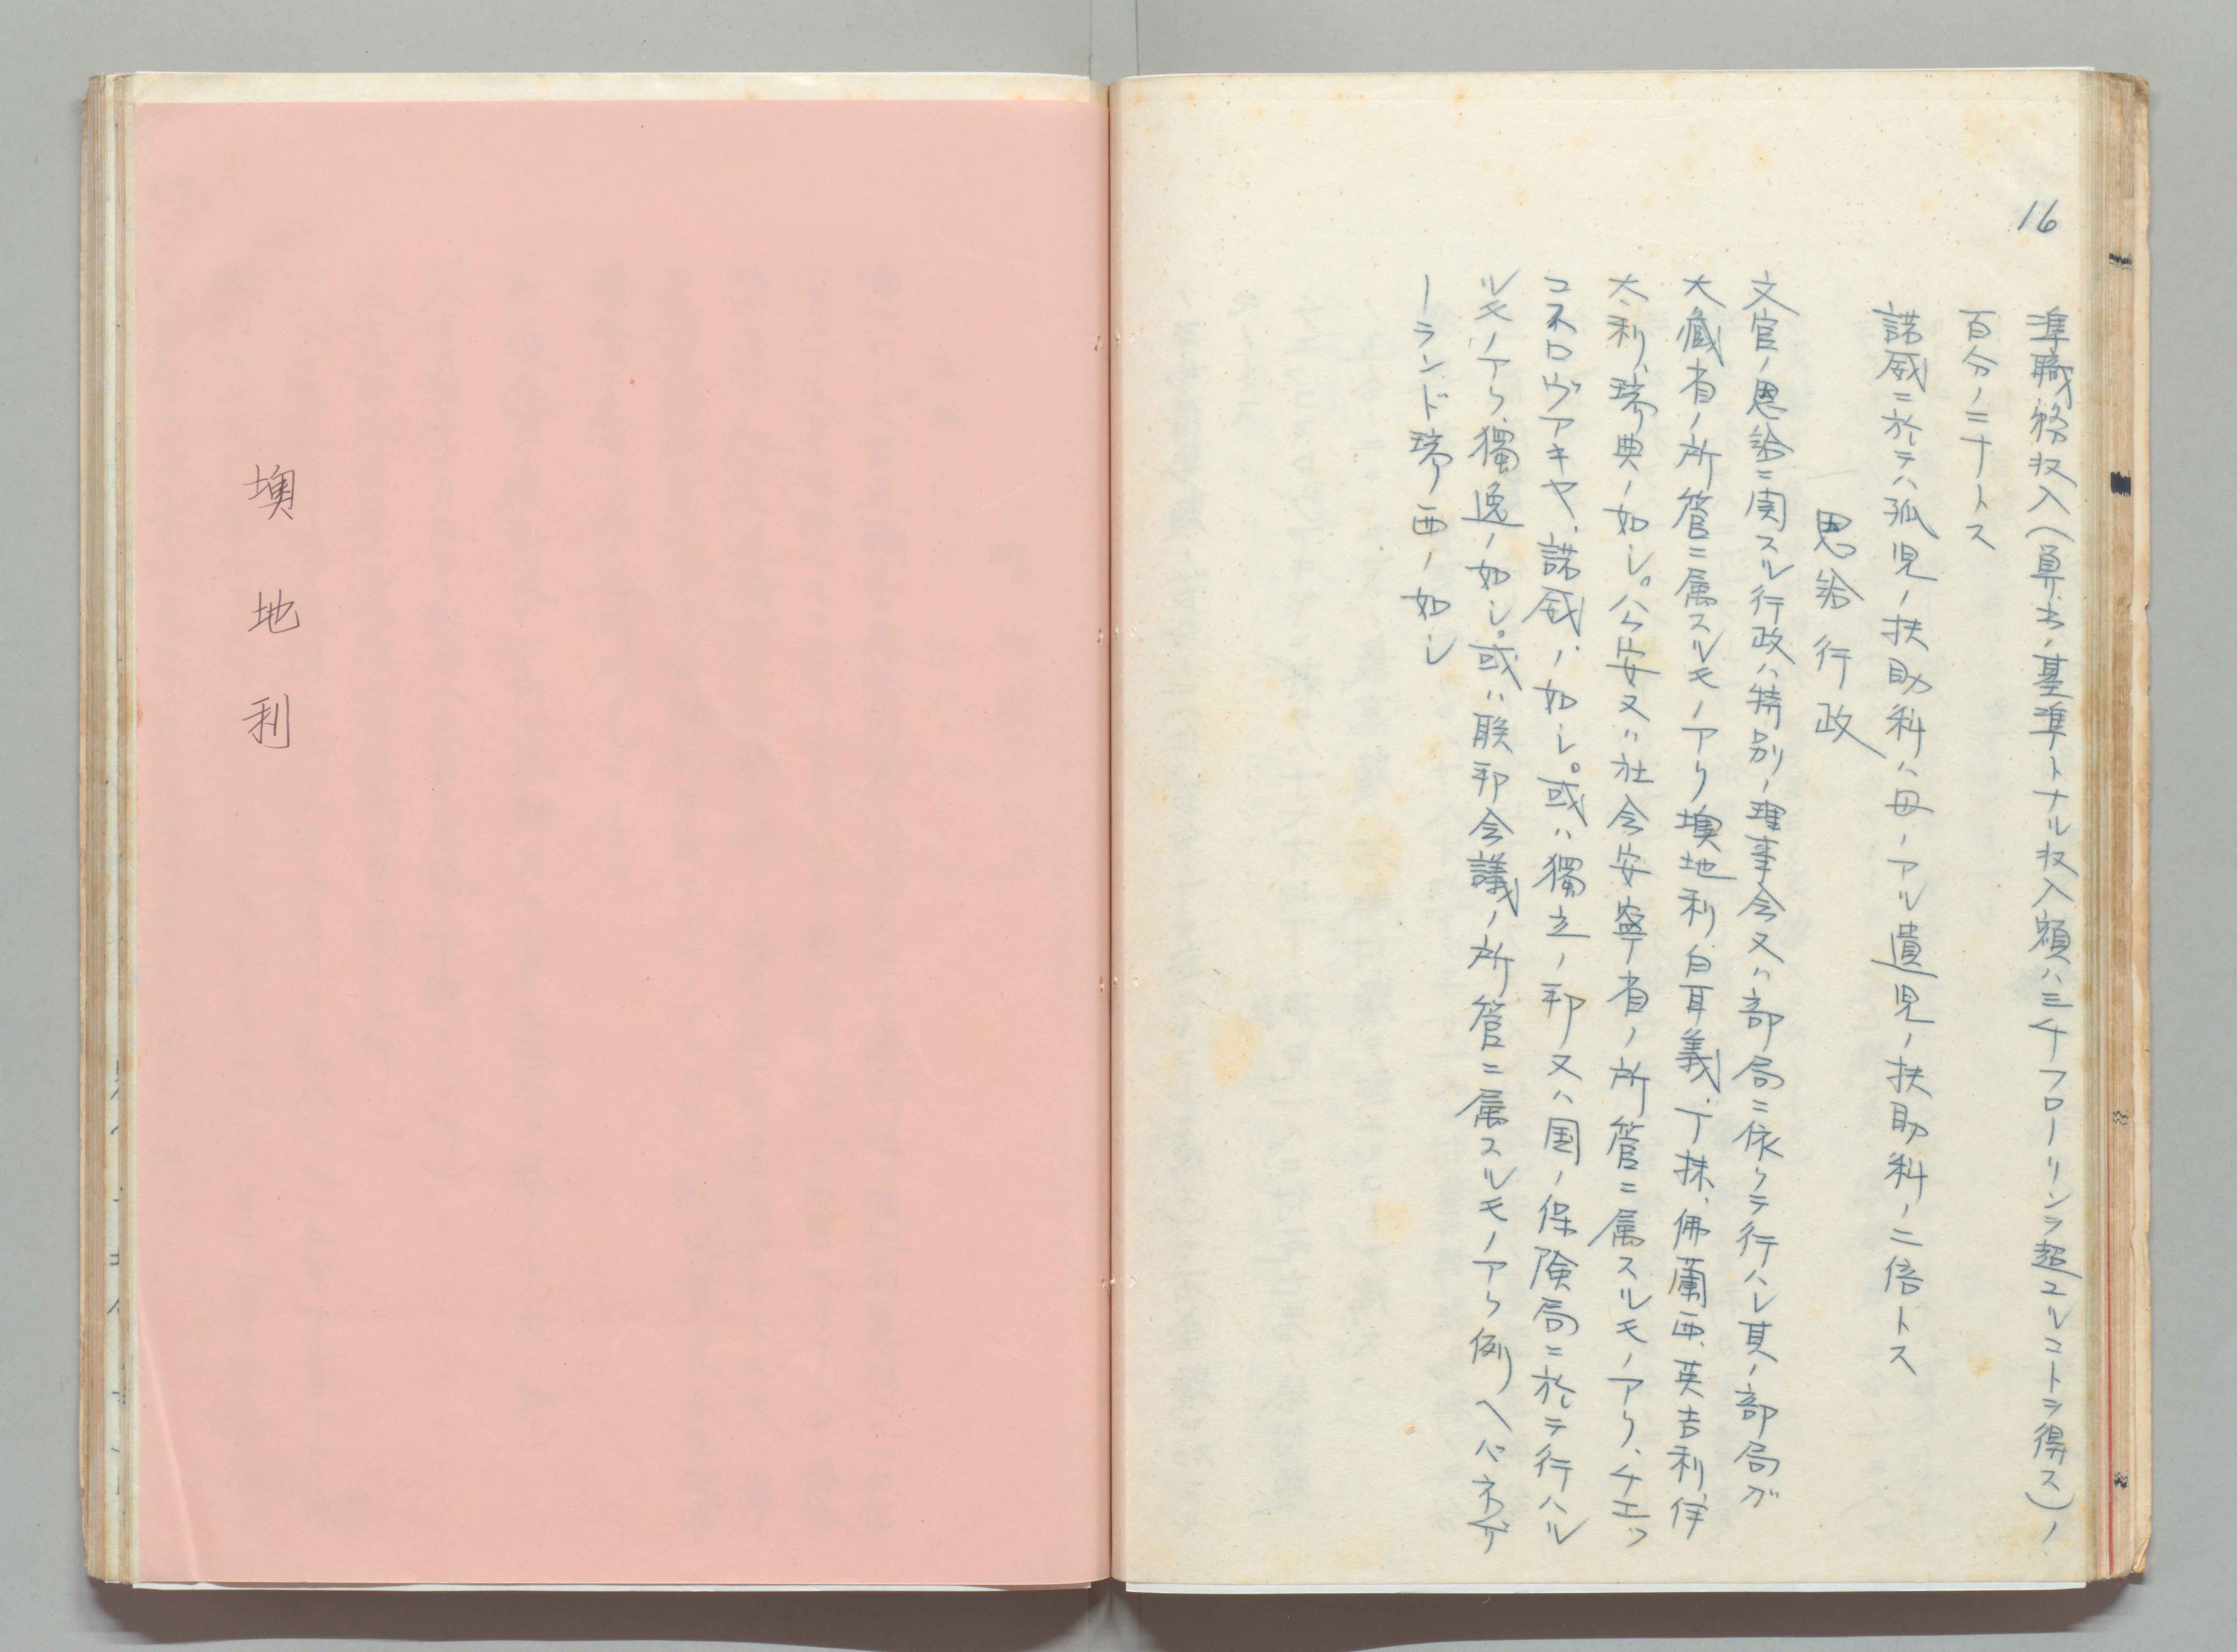 16
準職務収入(算出ノ基準トナル収入額ハ三千フローリンヲ超ユルコトヲ得ス)ノ
百分ノ二十トス
諾威ニ於テハ孤児ノ扶助料ハ母ノアル遺児ノ扶助料ノ二倍トス
恩給行政
文官ノ恩給ニ関スル行政ハ特別ノ理事会又ハ部局ニ依リテ行ハレ其ノ部局ガ
大蔵省ノ所管ニ属スルモノアリ墺地利、白耳義、丁抹、佛蘭西、英吉利、伊
太利、瑞典ノ如シ。公安又ハ社会安寧省ノ所管ニ属スルモノアリ、チエツ
コスロヴアキヤ、諾威、ノ如シ。或ハ獨立ノ邦又ハ国ノ保険局ニ於テ行ハル
ルモノアリ、獨逸ノ如シ。或ハ聯邦会議ノ所管ニ属スルモノアリ例ヘバネザ
ーランド瑞西ノ如シ
墺地利